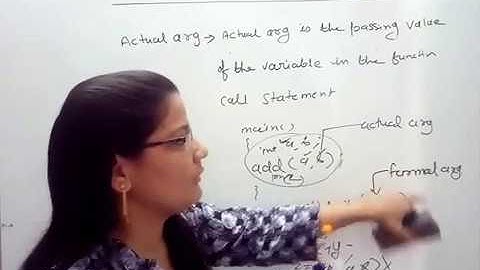 Actual arg → Actual arg is the passing value
of the variable in the function
call statement
main()
{
actual arg
add(a, b)
formal arg
}